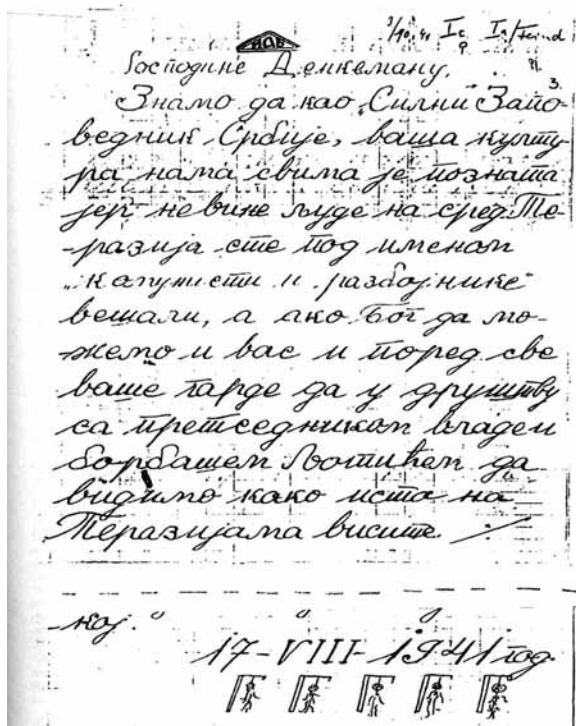 Господине Денкеману.
3.
Знамо да као „Силни Запо-
ведник Србије, ваша култу-
ра нама свима је позната
јер невине људе на сред Те-
-разија сте под именом
„капунисти и разбојнике“
вешали, а ако Бог да мо-
-жемо и вас и поред све
ваше гарде да у друштву
са претседником владе и
борбашем Љотићем да
видимо како исто на
Теразијама висите.
-кој.
17-VIII-1941 год.